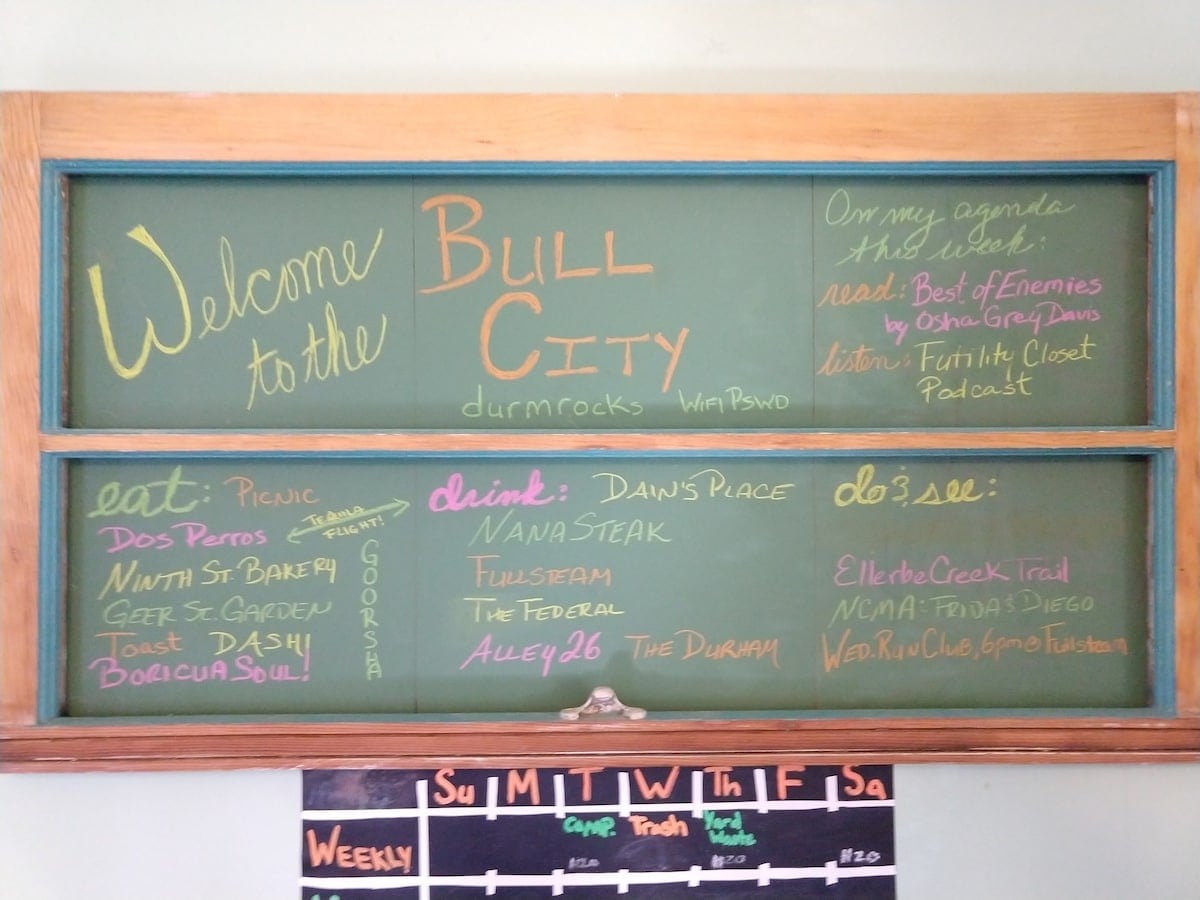 Welcome
to the
BULL
CITY
durmrocks WIFI PSWD
On my agenda
this week:
read: Best of Enemies
by Osha Grey Davis
listen: Futility Closet
Podcast
eat: PICNIC
DOS PERROS
TEQUILA
FLIGHT!
NINTH ST. BAKERY
GEER ST. GARDEN
Toast DASH!
BORICUA SOUL!
GOORSHA
drink: DAIN'S PLACE
NANASTEAK
FULLSTEAM
THE FEDERAL
ALLEY 26 THE DURHAM
do & see:
Ellerbe Creek Trail
NCMA: FRIDA & DIEGO
WED. RUN CLUB, 6pm @ Fullsteam
Su M T W Th F Sa
WEEKLY
comp. Trash Yard
Waste
H2O H2O H2O